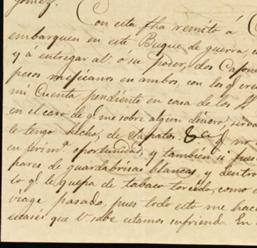 Gomez.
Con esta fha remito á
embarquen en este Buque de guerra,
y á entregar al o su poder, dos Cajones
pesos mejicanos en ambos, con los q. cre
mi Cuenta pendiente en casa de los
en el caso de q. me sobre algun dinero,
le tengo dicho, de Zapatos &a q. no
en prim.a oportunidad, y tambien si pues
pares de guardabrisas blancas, y dentro
lo q. le quepa de tabaco torcido, como
viage pasado, pues todo esto me hace
q. V. sabe estamos sufriendo. En